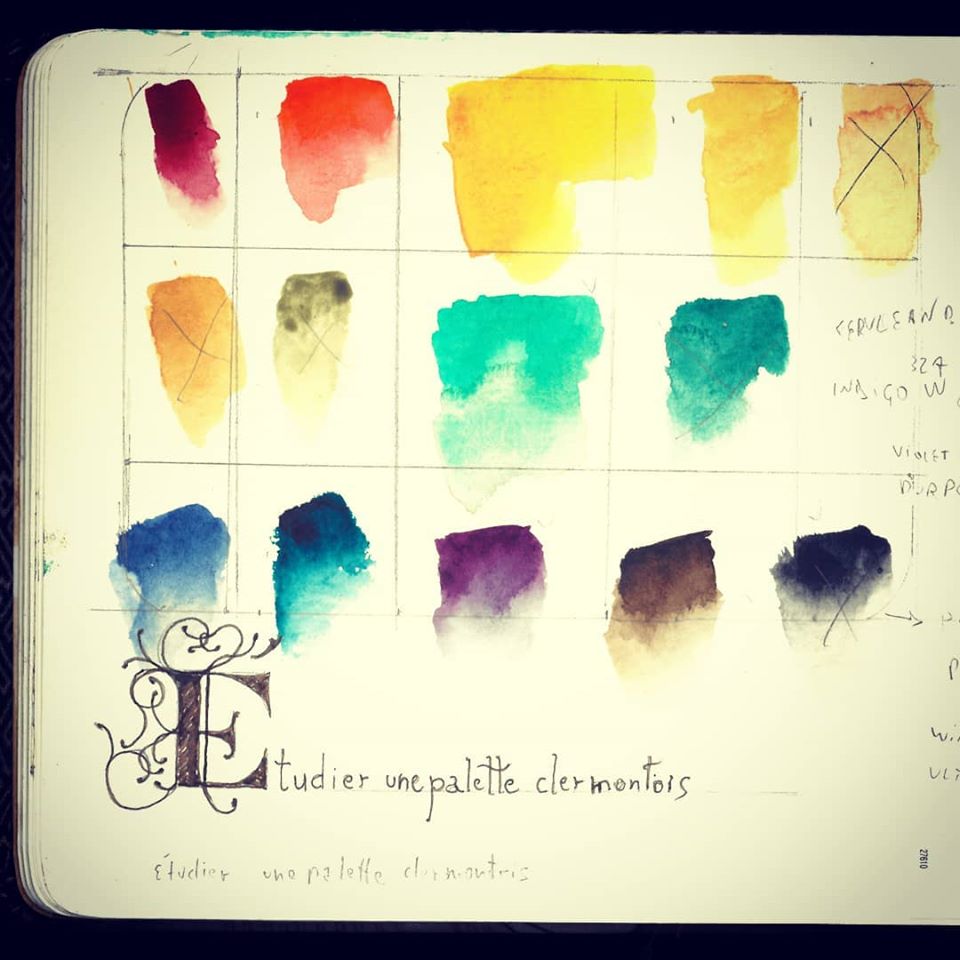 CERULEAN
324
INDIGO W
VIOLET
Etudier une palette clermontois
Étudier une palette clermontris
27610